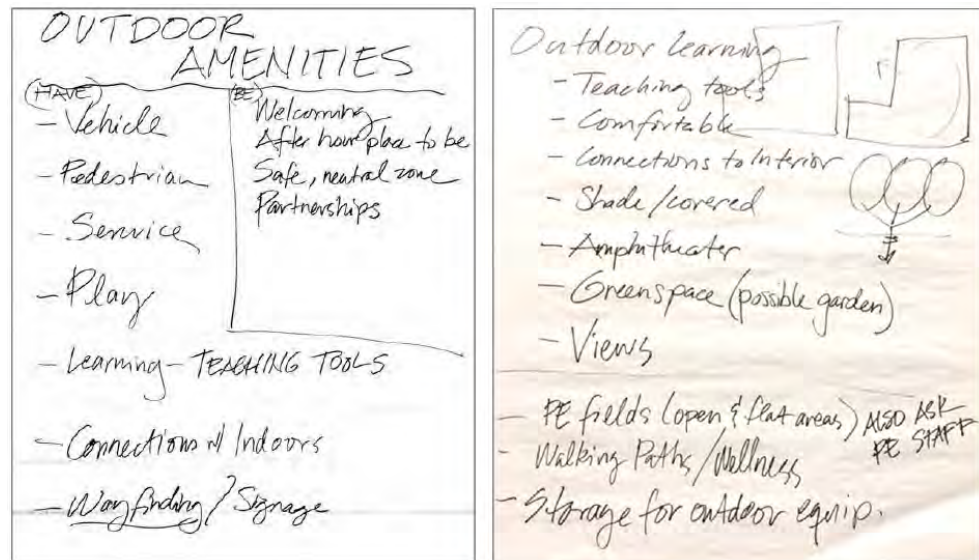 OUTDOOR
AMENITIES
(HAVE)
- Vehicle
- Pedestrian
- Service
- Play
- Learning - TEACHING TOOLS
- Connections w/ Indoors
- Wayfinding / Signage
(BE)
Welcoming
After hour place to be
Safe, neutral zone
Partnerships
Outdoor learning
- Teaching tools
- Comfortable
- Connections to Interior
- Shade/covered
- Amphitheater
- Greenspace (possible garden)
- Views
- PE fields (open & flat areas) ALSO ASK
PE STAFF
- Walking Paths/Wellness
- Storage for outdoor equip.